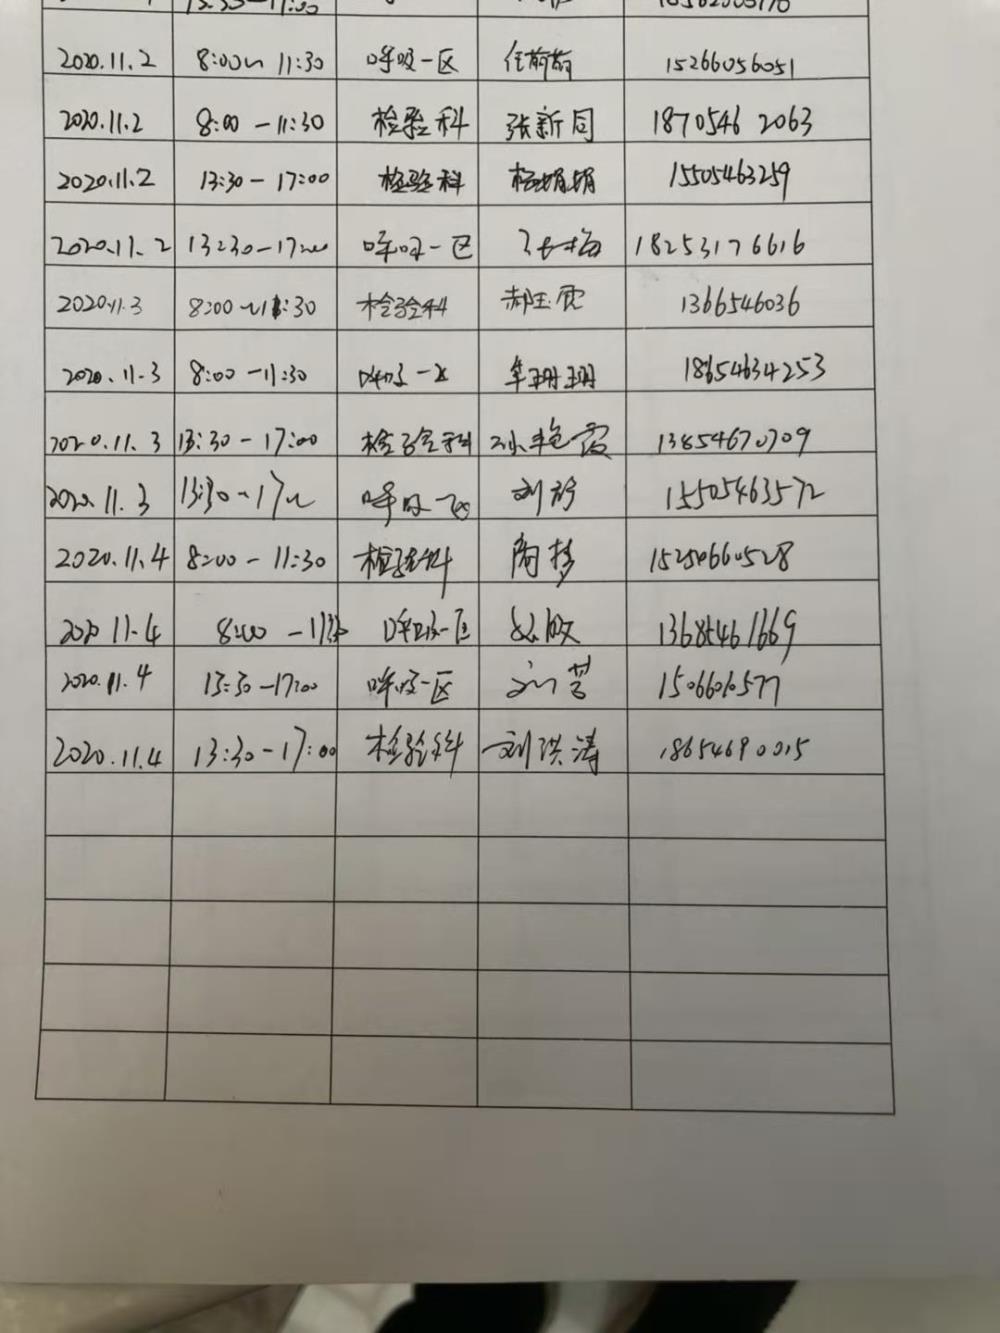 13:30-17:00
2020.11.2 8:00~11:30 呼吸一区 任前前 15266056051
2020.11.2 8:00-11:30 检验科 张新同 1870546 2063
2020.11.2 13:30-17:00 检验科 杨娟娟 15505463259
2020.11.2 13:30-17:00 呼吸一区 18253176616
2020.11.3 8:00~11:30 检验科 郝玉霞 1366546036
2020.11.3 8:00-11:30 呼吸一区 牟珊珊 18654634253
2020.11.3 13:30-17:00 检验科 孙艳霞 13854670709
2020.11.3 13:30-17 呼吸一区 刘 15505463572
2020.11.4 8:00-11:30 检验科 陶梦 15250660528
2020 11.4 8:00-11:30 呼吸一区 敏 13685461669
2020.11.4 13:30-17:00 呼吸一区 刘 1506606577
2020.11.4 13:30-17:00 检验科 刘洪涛 18654690015